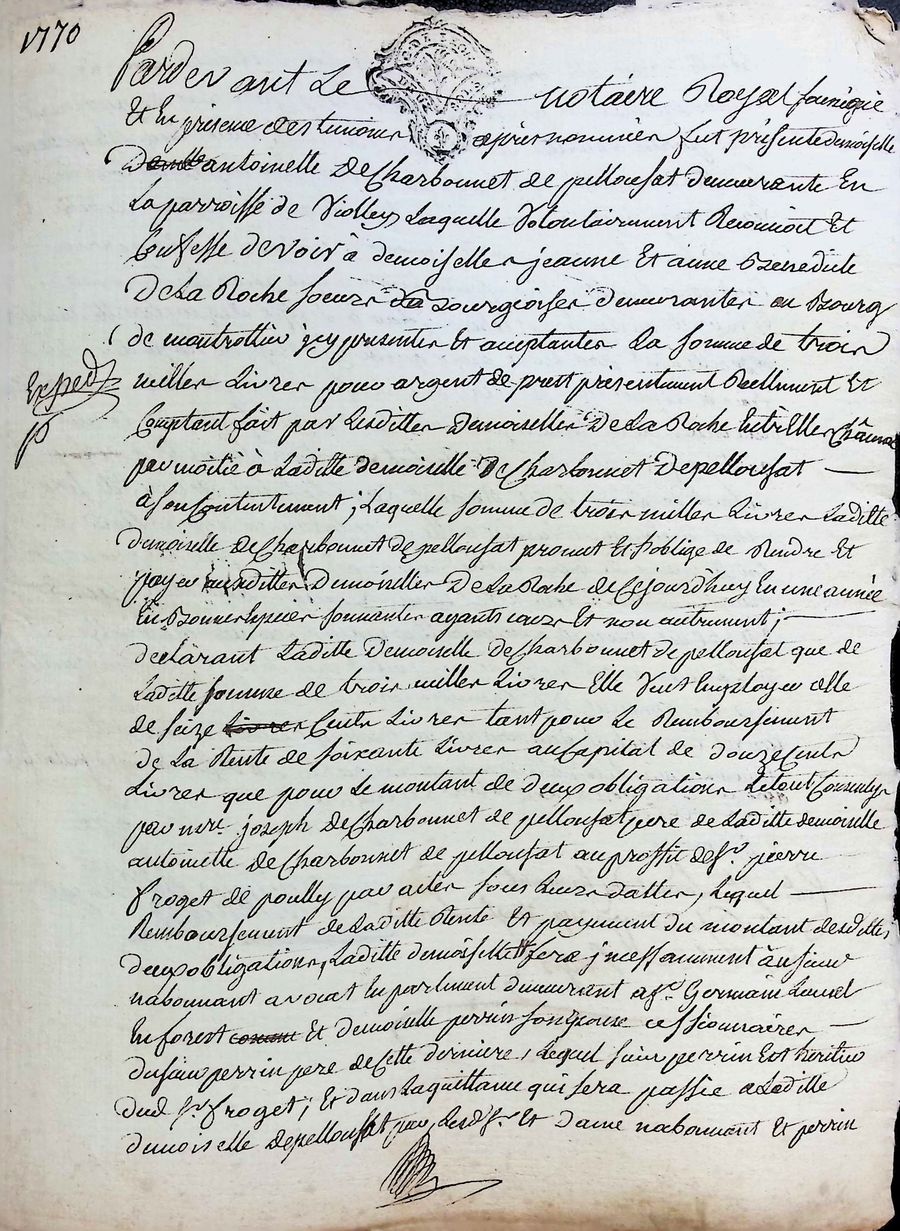 1770
Pardevant Le notaire Royal soussigné
Et En presence des temoins apres nommés fut présente demoiselle
antoinette De Charbonnet de pellousat demeurante En
La parroisse de Violleys Laquelle Volontairement Reconnoit Et
Confesse devoir à demoiselles jeanne Et anne Benedicte
De La Roche soeurs bourgeoises demeurantes au Bourg
de montrottier icy presentes Et acceptantes La somme de trois
milles Livres pour argent de prest présentement Reellement Et
Comptant fait par Lesdittes Demoiselles De La Roche Entre Elles Châcune
par moitié à Laditte demoiselle De Charbonnet De pellousat
à son Contentement ; Laquelle somme de trois milles Livres Laditte
Demoiselle De Charbonnet De pellousat promet Et s'oblige de Rendre Et
payer ausdittes Demoiselles De La Roche de Cejourdhuy En une année
En Bonnes Especes sonnantes ayants cours Et non autrement ;
declarant Laditte Demoiselle De Charbonnet de pellousat que de
Laditte somme de trois milles Livres Elle Veut Employer celle
de seize Livres Cents Livres tant pour Le Remboursement
de La Rente de soixante Livres au Capital de douze Cents
Livres que pour Le montant de deux obligations Le tout Consenty
par mre. joseph De Charbonnet de pellousat pere de Laditte demoiselle
antoinette De Charbonnet de pellousat au proffit de Sr. pierre
froget de pouilly par actes sous Leurs dattes, Lequel
Remboursement de Laditte Rente Et payement du montant desdittes
deux obligations, Laditte demoiselle fera incessamment au sieur
nabonnant avocat En parlement demeurant a St. Germain Laval
En forest Et demoiselle perrin son Epouse cessionnaires
du sieur perrin pere de Cette derniere, Lequel sieur perrin Est heritier
dud. Sr. froget ; Et dans La quittance qui sera passée a Laditte
demoiselle De pellousat par Lesd. Sr. Et Dame nabonnant Et perrin
Exped.